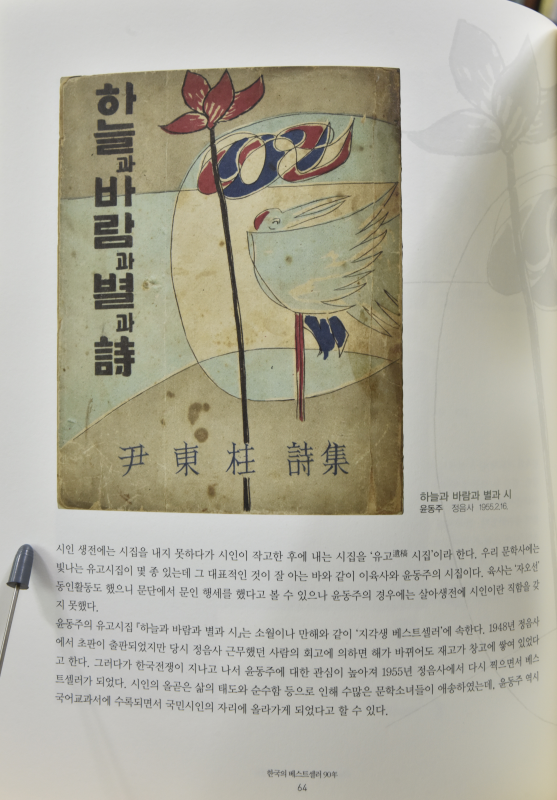 하늘과 바람과 별과 詩
尹東柱 詩集
하늘과 바람과 별과 시
윤동주 정음사 1955.2.16.
시인 생전에는 시집을 내지 못하다가 시인이 작고한 후에 내는 시집을 '유고遺稿 시집'이라 한다. 우리 문학사에는
빛나는 유고시집이 몇 종 있는데 그 대표적인 것이 잘 아는 바와 같이 이육사와 윤동주의 시집이다. 육사는 '자오선'
동인활동도 했으니 문단에서 문인 행세를 했다고 볼 수 있으나 윤동주의 경우에는 살아생전에 시인이란 직함을 갖
지 못했다.
윤동주의 유고시집 『하늘과 바람과 별과 시』는 소월이나 만해와 같이 '지각생 베스트셀러'에 속한다. 1948년 정음사
에서 초판이 출판되었지만 당시 정음사 근무했던 사람의 회고에 의하면 해가 바뀌어도 재고가 창고에 쌓여 있었다
고 한다. 그러다가 한국전쟁이 지나고 나서 윤동주에 대한 관심이 높아져 1955년 정음사에서 다시 찍으면서 베스
트셀러가 되었다. 시인의 올곧은 삶의 태도와 순수함 등으로 인해 수많은 문학소녀들이 애송하였는데, 윤동주 역시
국어교과서에 수록되면서 국민시인의 자리에 올라가게 되었다고 할 수 있다.
한국의 베스트셀러 90年
64